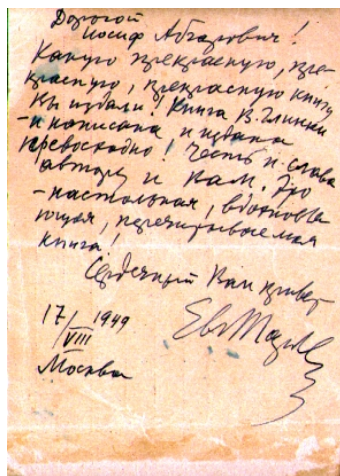 Дорогой
Иосиф Абгарович!
Какую прекрасную, пре-
красную, прекрасную книгу
Вы издали! Книга В. Глинки
- и написана и издана
превосходно! Честь и слава
автору и Вам. Это
- настольная, вдохновля
ющая, перечитываемая
книга!
Сердечный Вам привет
17/VIII 1949
Москва